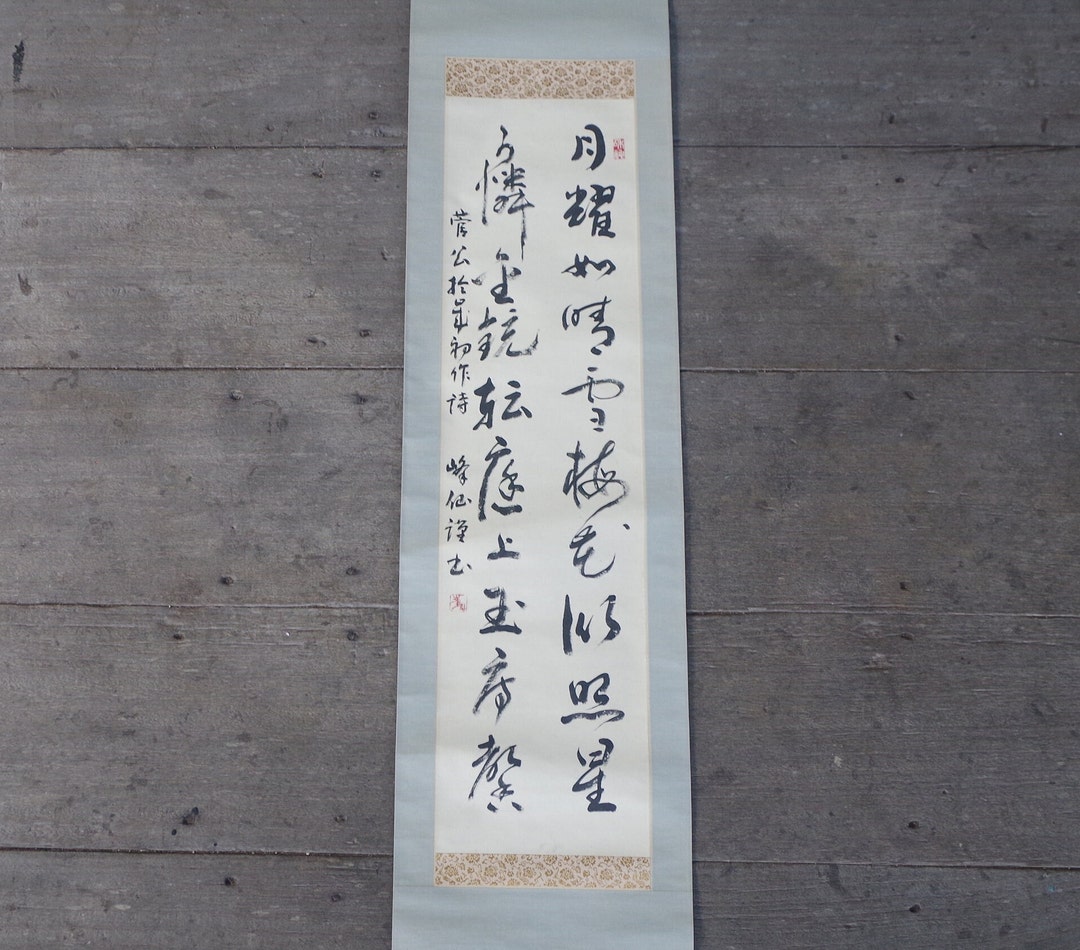 月耀如晴雪梅花似照星
可憐金鏡転庭上玉房馨
菅公於歳初作詩 峰仙謹書